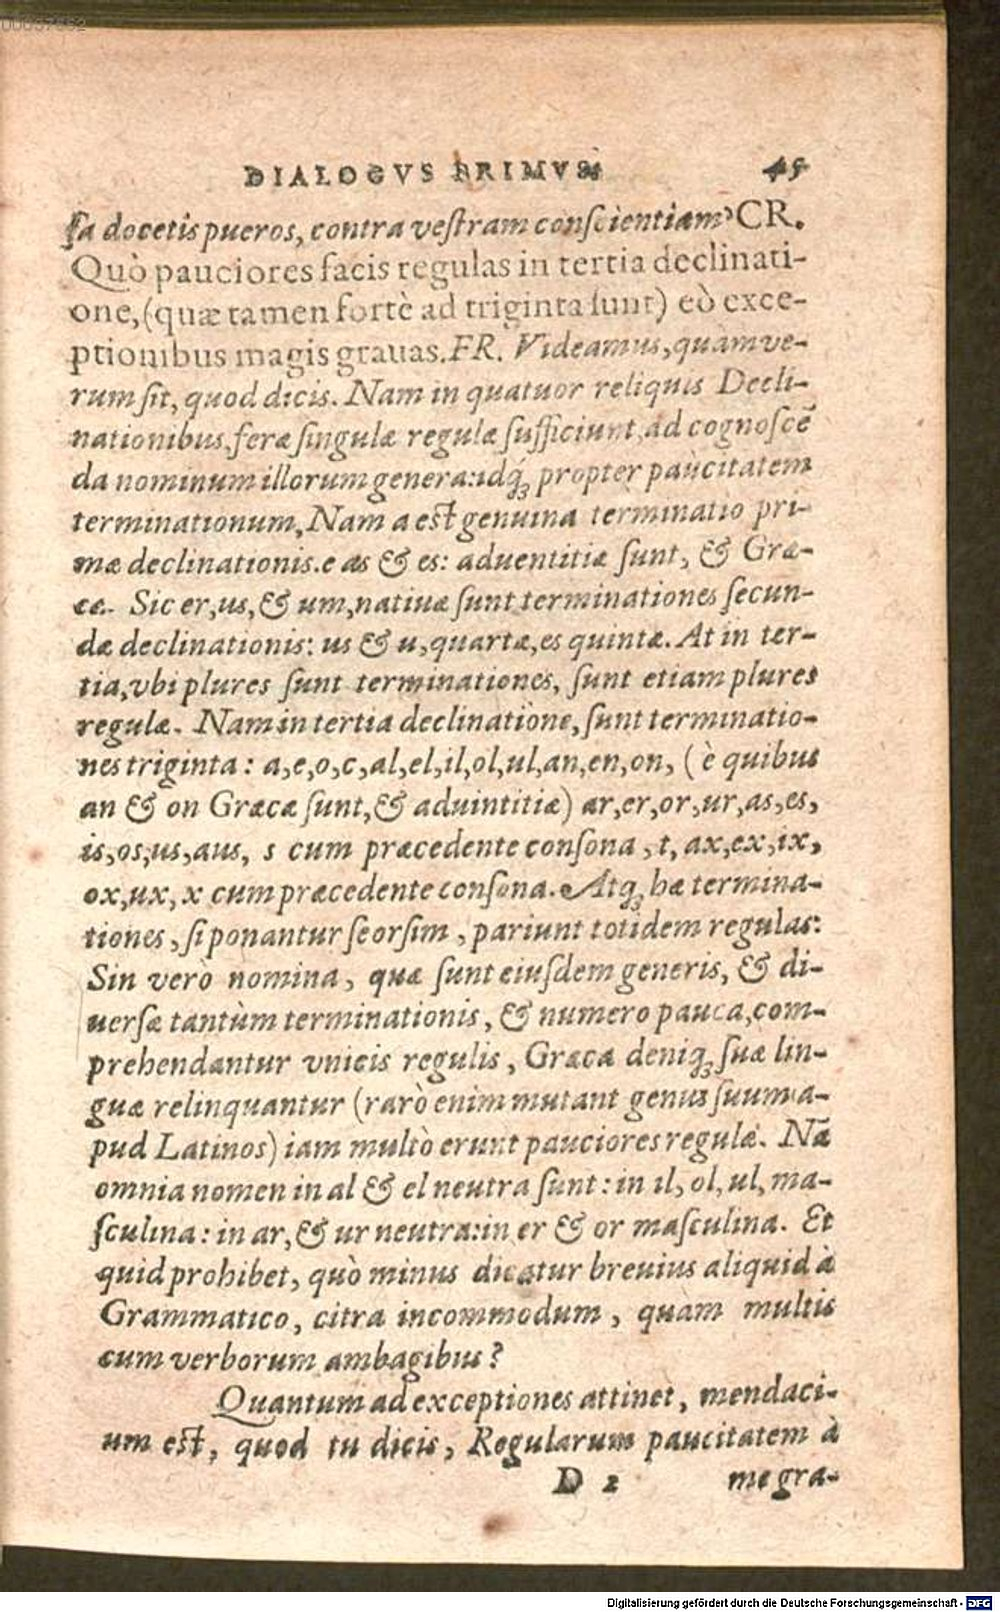 00037662
DIALOGVS PRIMVS 45
ſa docetis pueros, contra veſtram conſcientiam? CR.
Quò pauciores facis regulas in tertia declinati-
one, (quæ tamen fortè ad triginta ſunt) eò exce-
ptionibus magis grauas. FR. Videamus, quàm ve-
rum ſit, quod dicis. Nam in quatuor reliquis Decli-
nationibus, feræ ſingulæ regulæ ſufficiunt, ad cognoſcẽ
da nominum illorum genera: idq́; propter paucitatem
terminationum, Nam a eſt genuina terminatio pri-
mæ declinationis. e as & es: aduentitiæ ſunt, & Græ-
cæ. Sic er, us, & um, natiuæ ſunt terminationes ſecun-
dæ declinationis: us & u, quartæ, es quintæ. At in ter-
tia, vbi plures ſunt terminationes, ſunt etiam plures
regulæ. Nam in tertia declinatione, ſunt terminatio-
nes triginta: a, e, o, c, al, el, il, ol, ul, an, en, on, (è quibus
an & on Græcæ ſunt, & aduintitiæ) ar, er, or, ur, as, es,
is, os, us, aus, s cum præcedente conſona, t, ax, ex, ix,
ox, ux, x cum præcedente conſona. Atq; hæ termina-
tiones, ſi ponantur ſeorſim, pariunt totidem regulas:
Sin verò nomina, quæ ſunt eiuſdem generis, & di-
uerſæ tantùm terminationis, & numero pauca, com-
prehendantur vnicis regulis, Græca deniq; ſuæ lin-
guæ relinquantur (rarò enim mutant genus ſuum a-
pud Latinos) iam multò erunt pauciores regulæ. Nã
omnia nomen in al & el neutra ſunt: in il, ol, ul, ma-
ſculina: in ar, & ur neutra: in er & or maſculina. Et
quid prohibet, quò minus dicatur breuius aliquid à
Grammatico, citra incommodum, quam multis
cum verborum ambagibus?
Quantum ad exceptiones attinet, mendaci-
um eſt, quod tu dicis, Regularum paucitatem à
D 2 me gra-
Digitalisierung gefördert durch die Deutsche Forschungsgemeinschaft - DFG